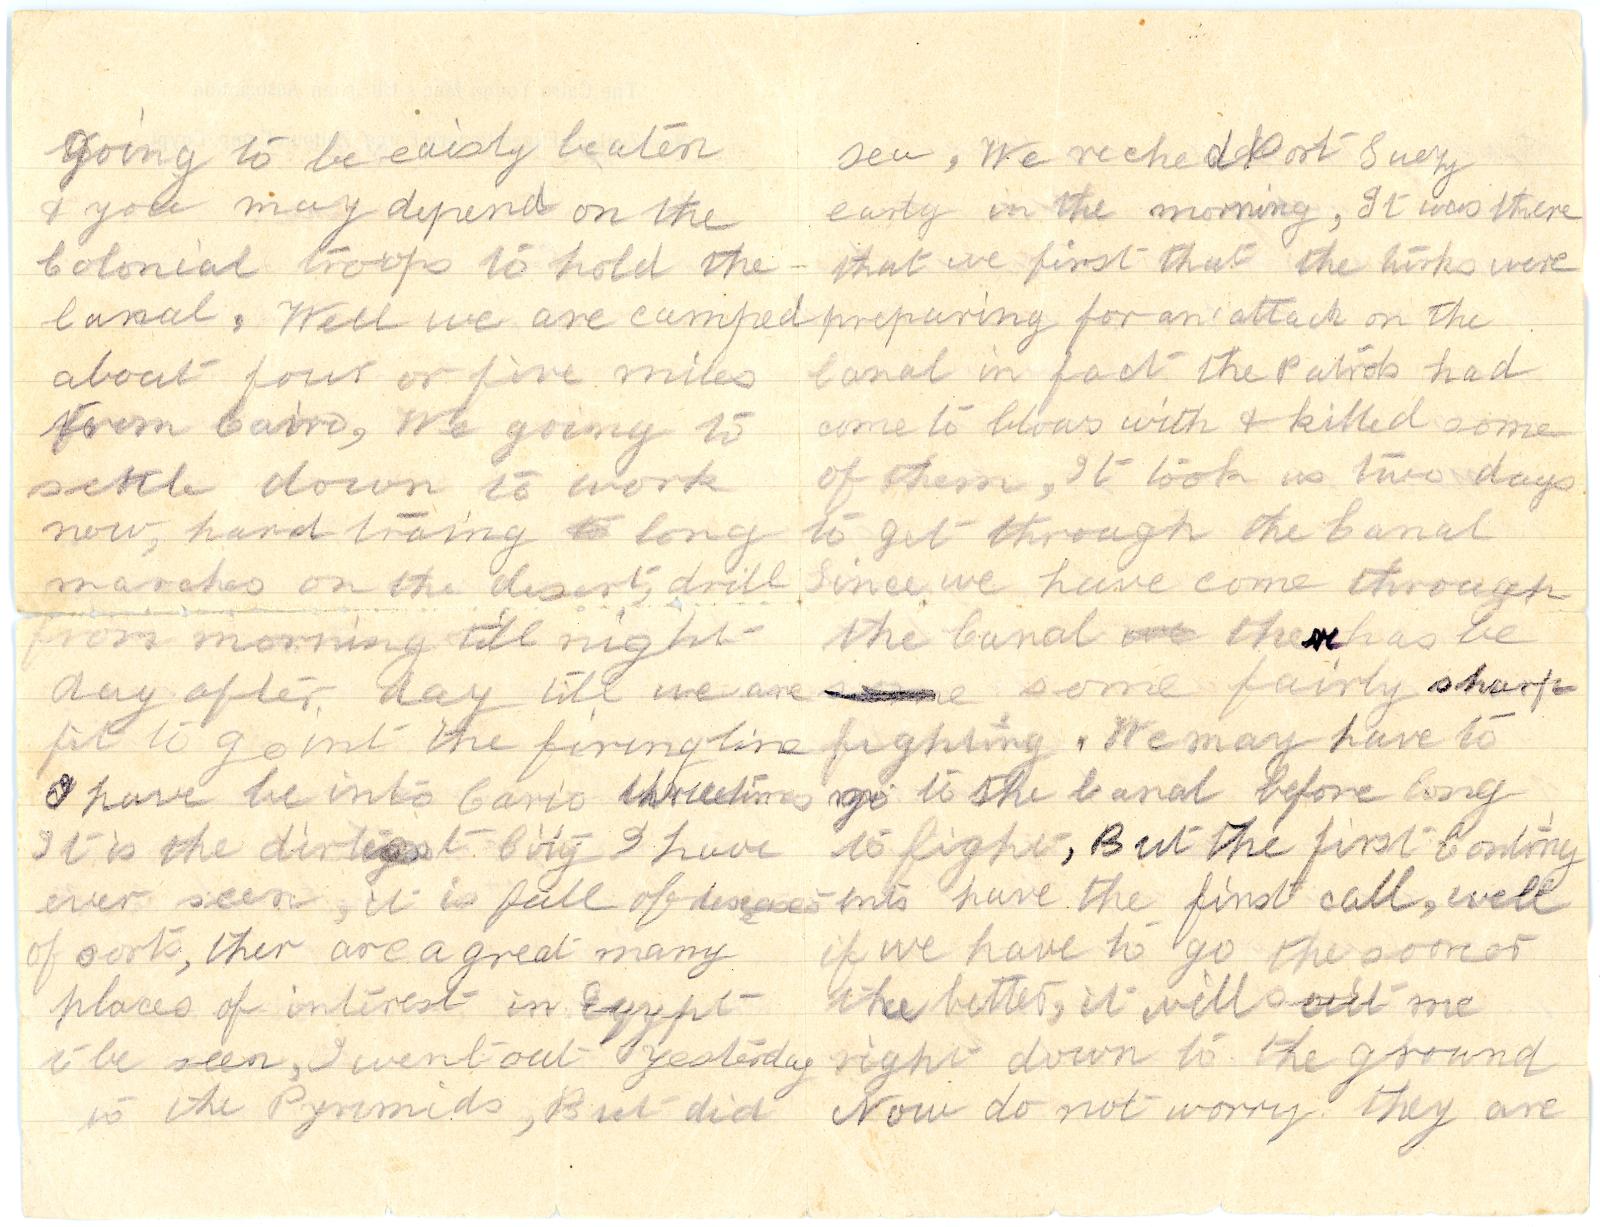 going to be eaisly beaten
& you may depend on the
Colonial troops to hold the -
Canal, Well we are camped
about four or five miles
from Cairo, We going to
settle down to work
now, hard traing long
marches on the desert, drill
from morning till night
day after day till we are
fit to go int the firing line
I have be into Cario three times
It is the dirtiest City I have
ever seen, it is full of deseases
of sorts, ther are a great many
places of interest in Egypt
t be seen, I went out yesterday
to the Pyramids, But did
sea, We reched Port Suez
early in the morning, It was there
that we first that the turks were
preparing for an attack on the
Canal in fact the Patrols had
come to blows with & killed some
of them, It took us two days
to get through the Canal
Since we have come through
the Canal there has be
some fairly sharp
fighting. We may have to
go to the Canal before long
to fight, But the first Conting
ints have the first call, well
if we have to go the sooner
the better, it will suit me
right down to the ground
Now do not worry they are